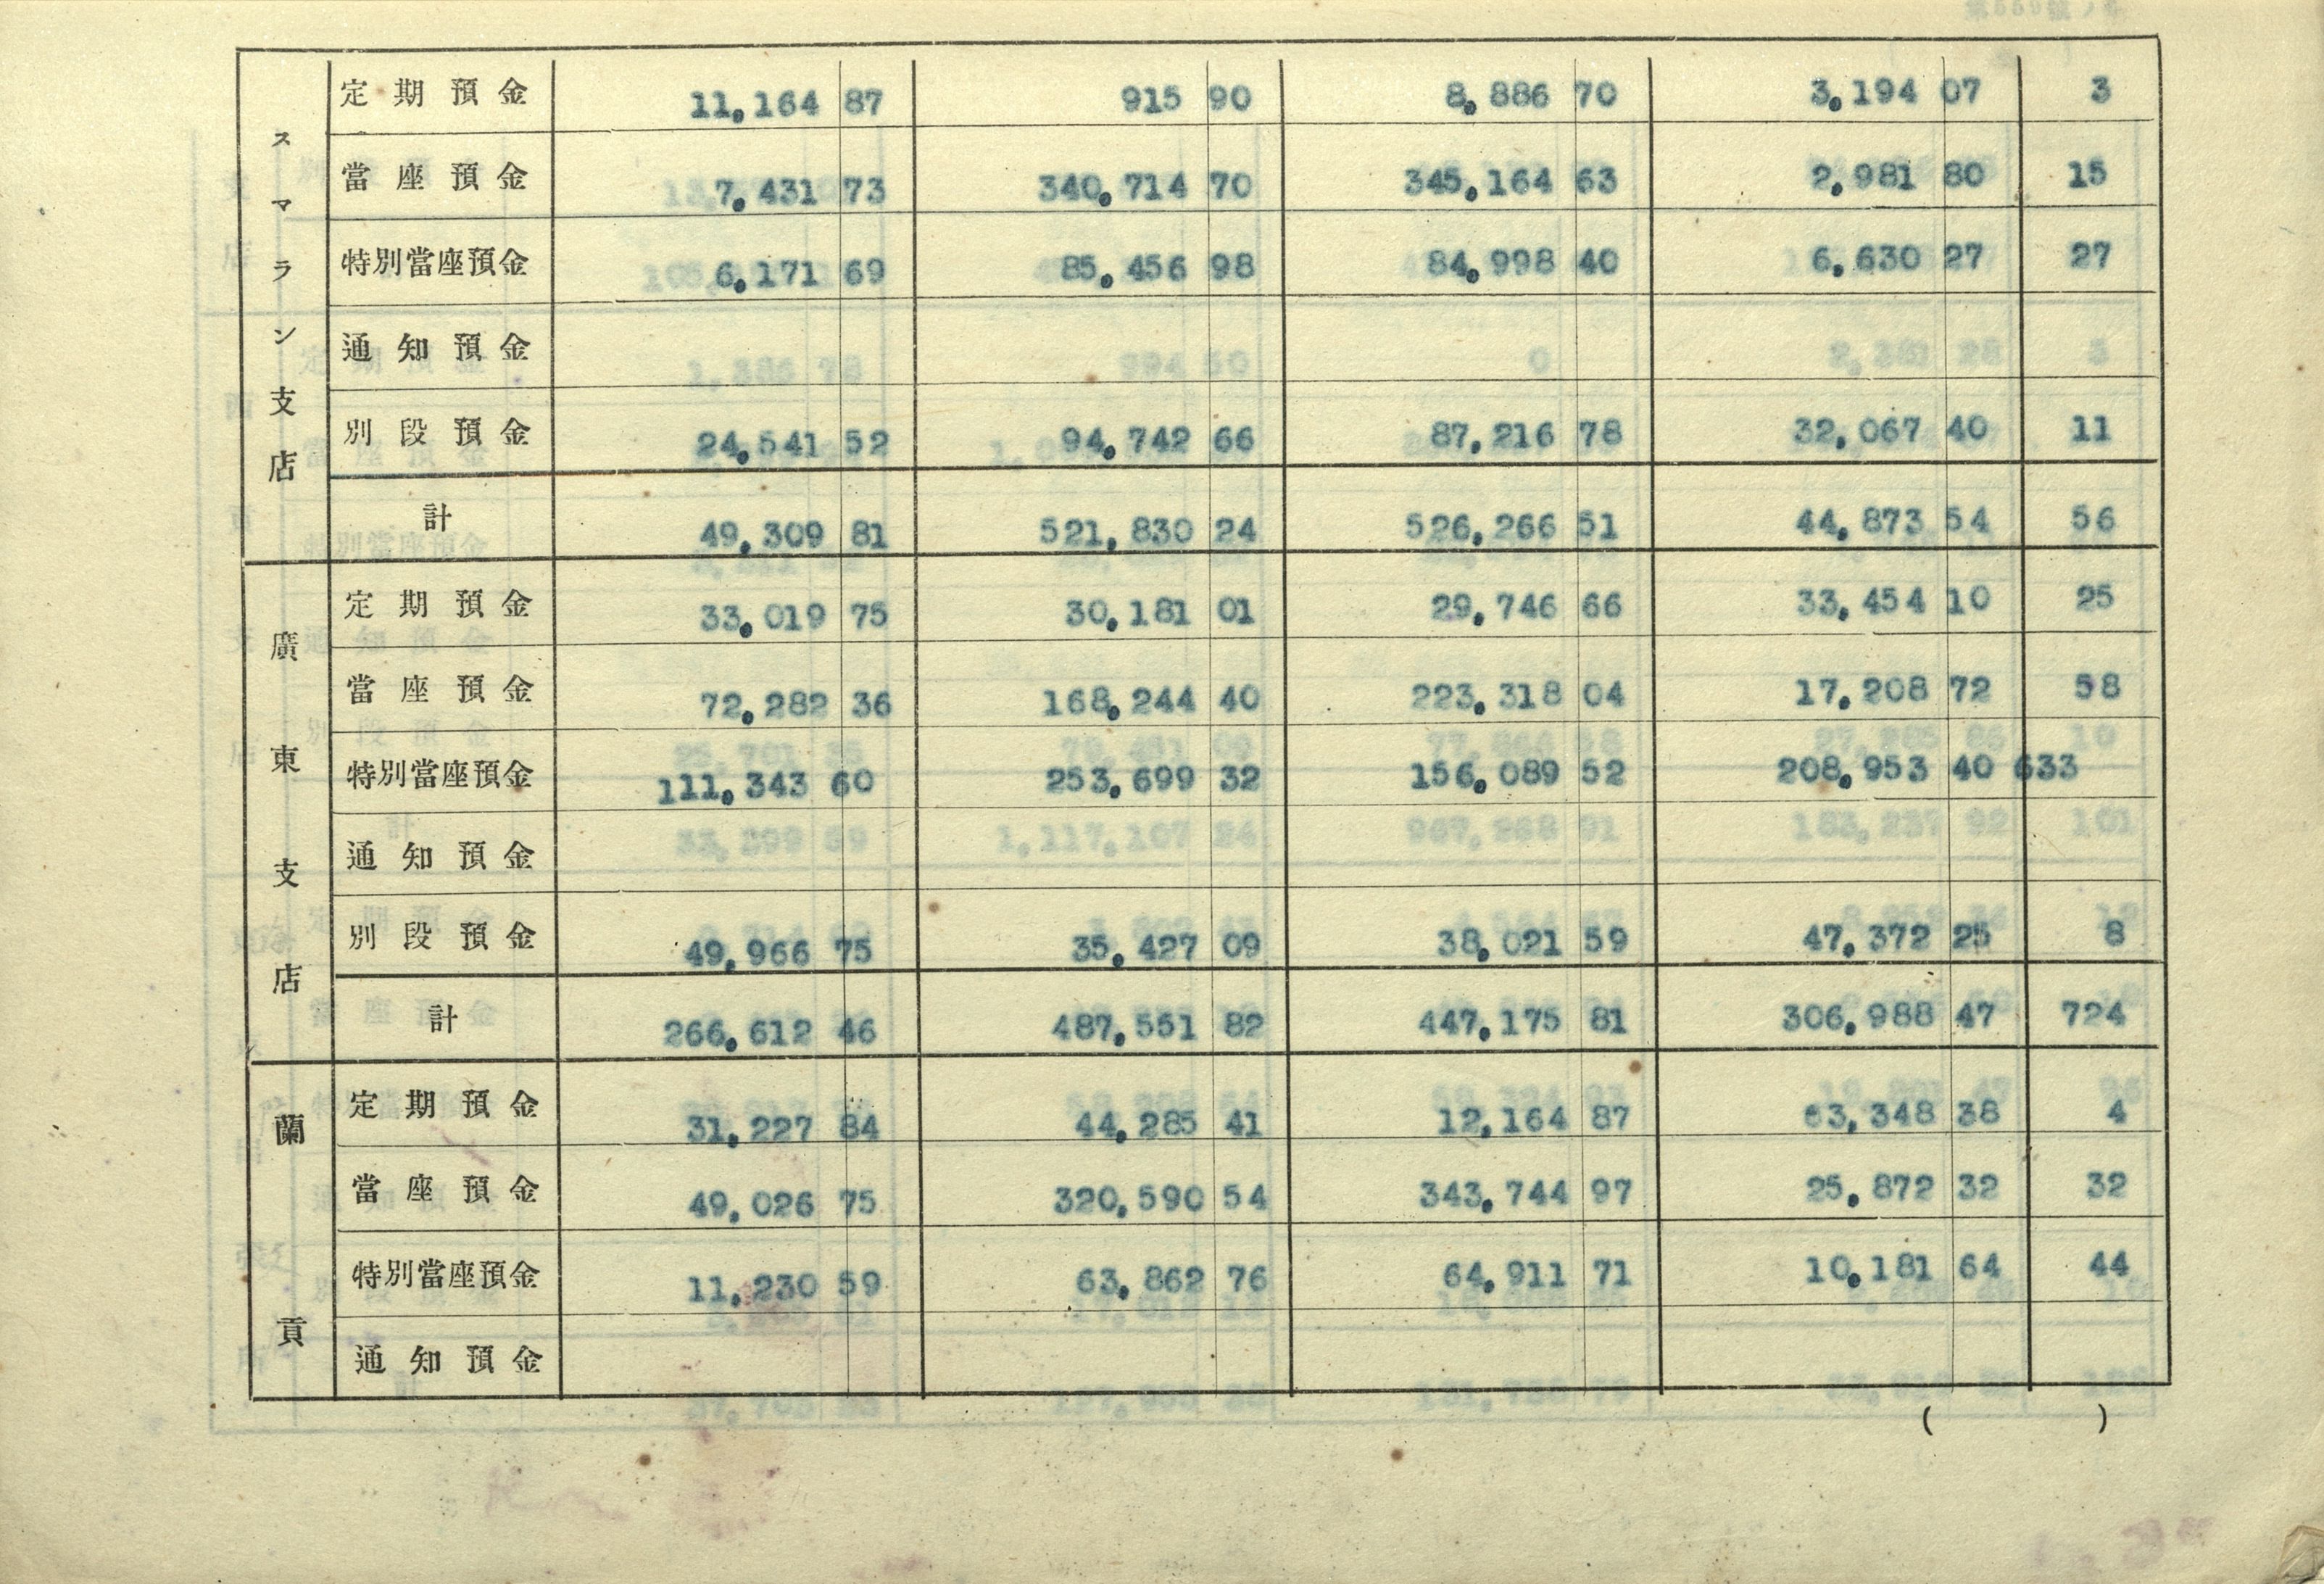 スマラン支店
定期預金 11,164 87 915 90 8,886 70 3,194 07 3
當座預金 7,431 73 340,714 70 345,164 63 2,981 80 15
特別當座預金 6,171 69 85,456 98 84,998 40 6,630 27 27
通知預金
別段預金 24,541 52 94,742 66 87,216 78 32,067 40 11
計 49,309 81 521,830 24 526,266 51 44,873 54 56
廣東支店
定期預金 33,019 75 30,181 01 29,746 66 33,454 10 25
當座預金 72,282 36 168,244 40 223,318 04 17,208 72 58
特別當座預金 111,343 60 253,699 32 156,089 52 208,953 40 633
通知預金
別段預金 49,966 75 35,427 09 38,021 59 47,372 25 8
計 266,612 46 487,551 82 447,175 81 306,988 47 724
蘭貢
定期預金 31,227 84 44,285 41 12,164 87 63,348 38 4
當座預金 49,026 75 320,590 54 343,744 97 25,872 32 32
特別當座預金 11,230 59 63,862 76 64,911 71 10,181 64 44
通知預金
( )